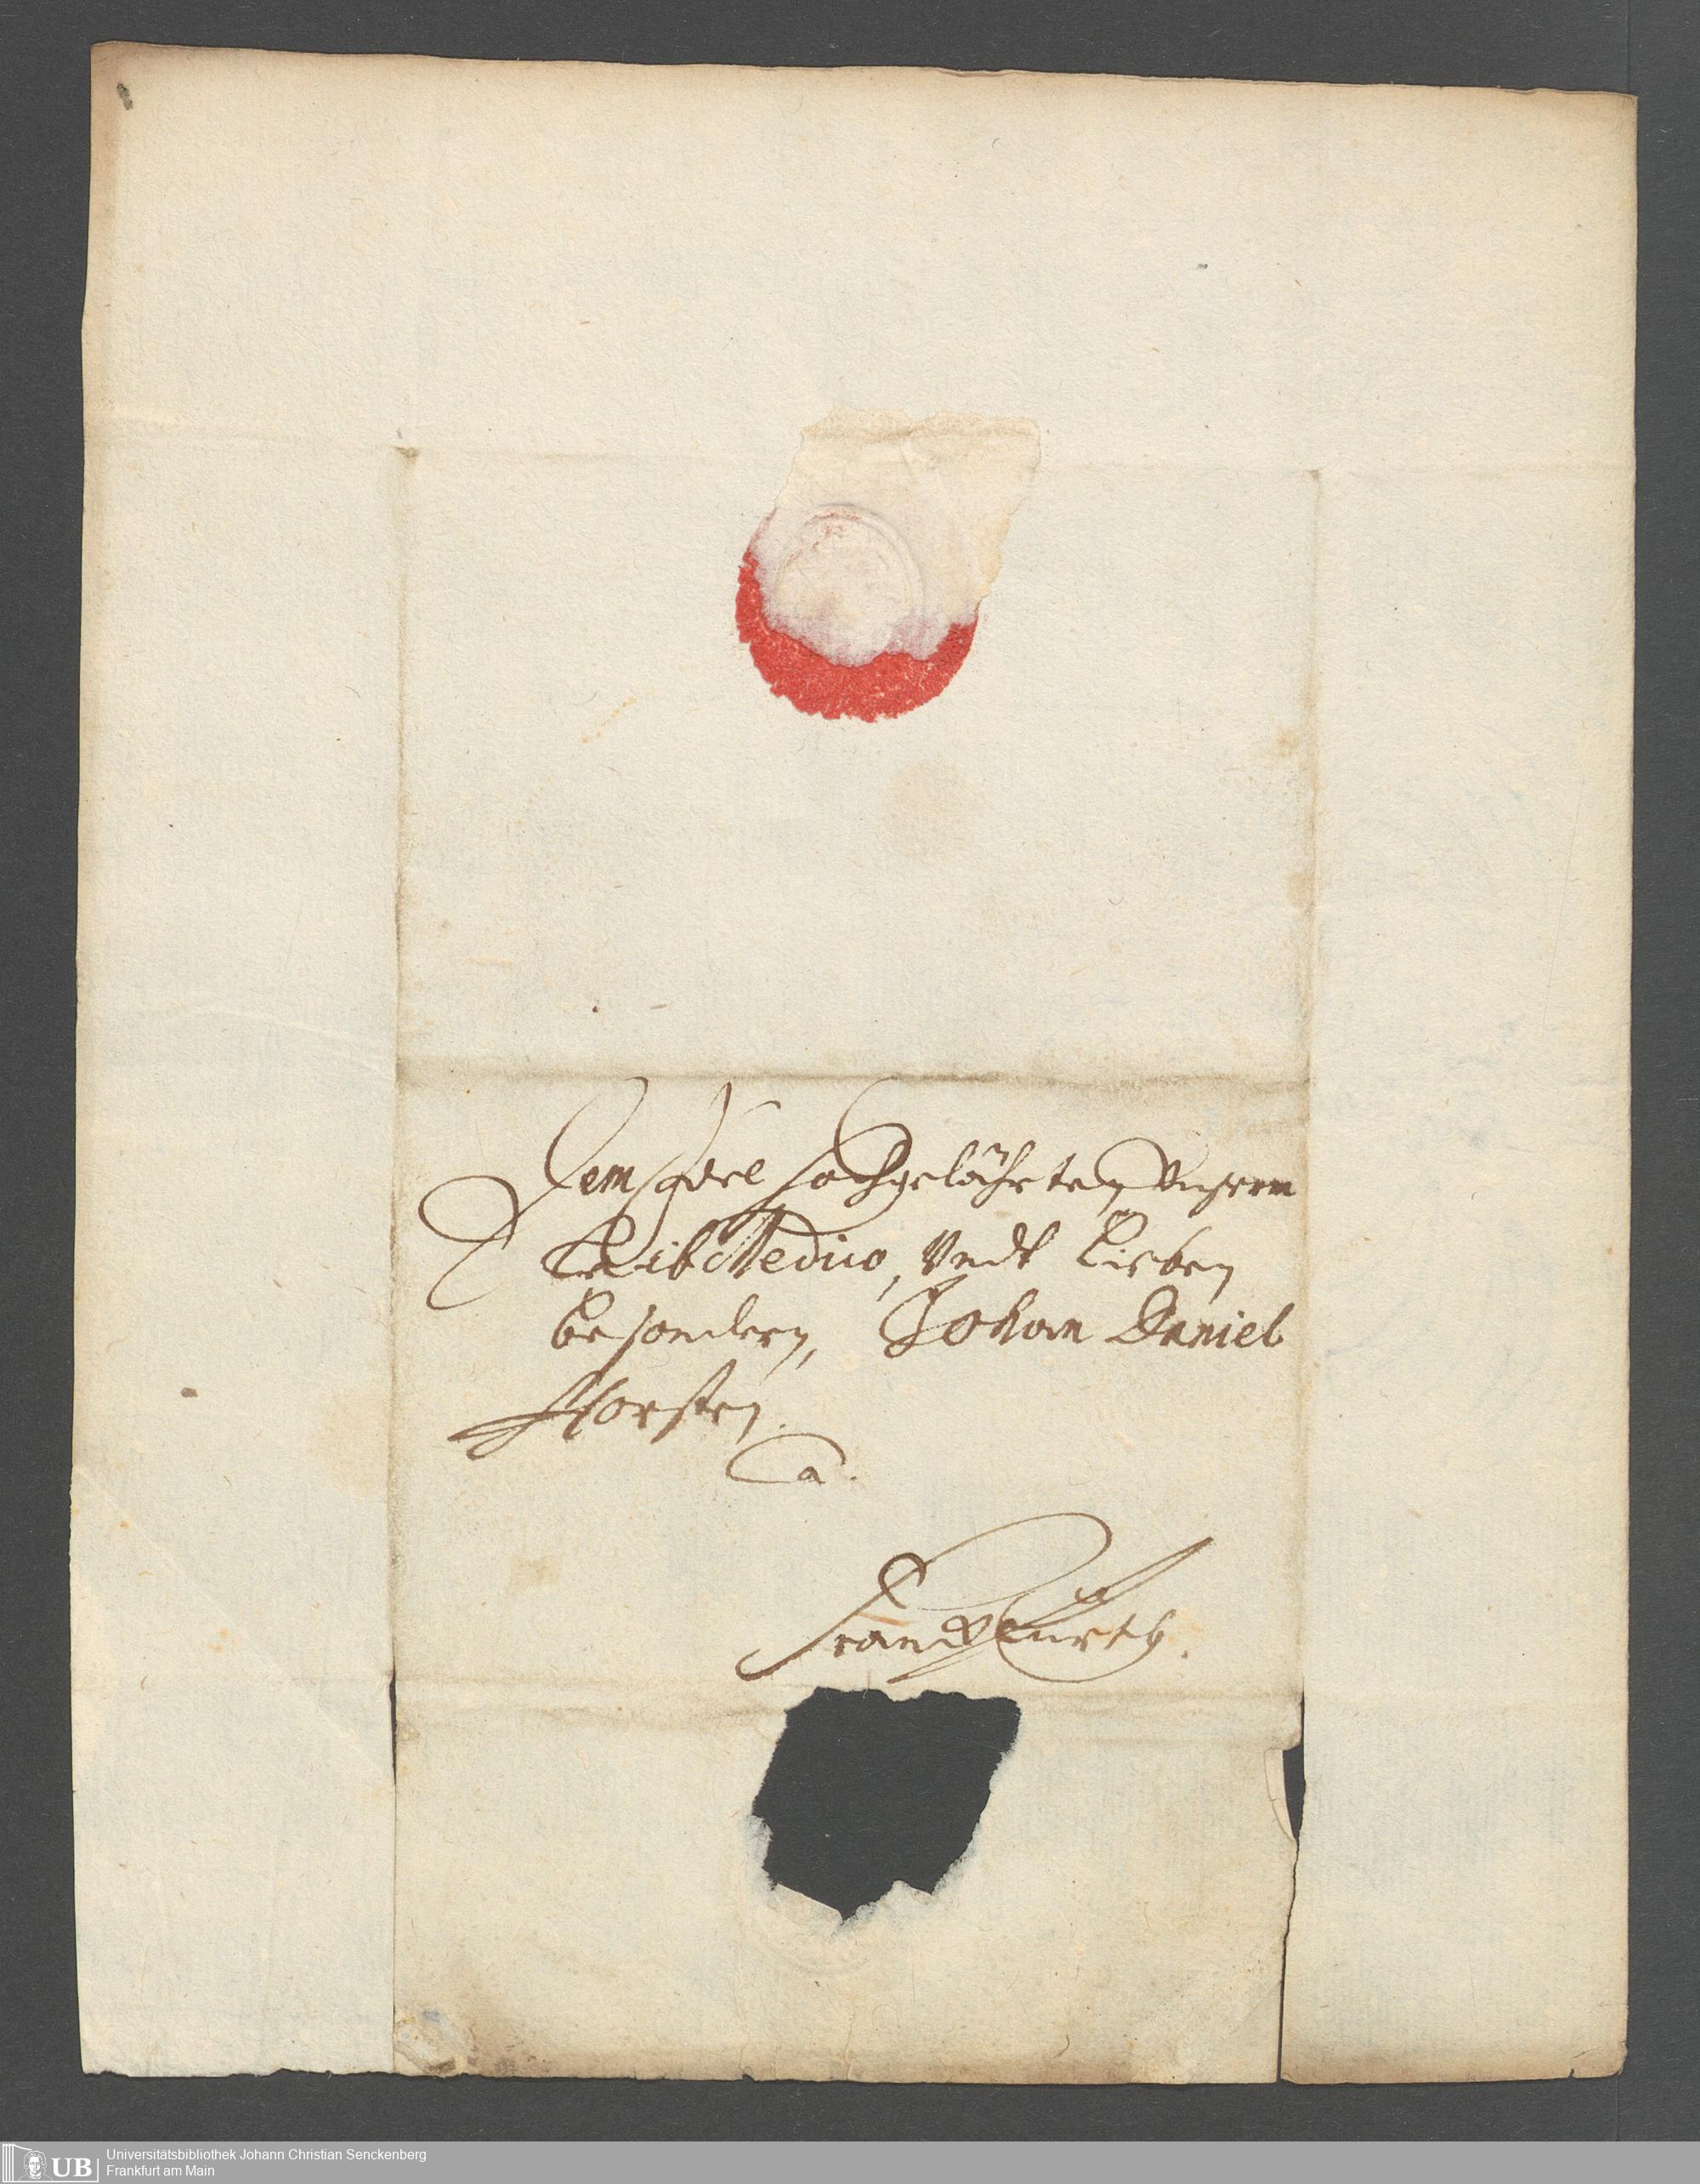 Dem Hochgelährten Unserm
LeibMedico, Undt Lieben
besondern, Johan Daniel
Horsten
a.
Franckfurth.
UB
Universitätsbibliothek Johann Christian Senckenberg
Frankfurt am Main